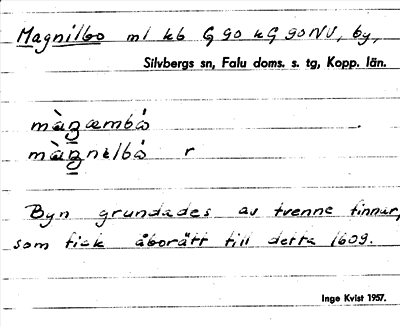 Magnilbo ml kb G 90 kG 90 NV, by,
Silvbergs sn, Falu doms. s. tg, Kopp. län.
màŋæmbå
màŋnɩlbå r
Byn grundades av tvenne finnar,
som fick åborätt till detta 1609.
Inge Kvist 1957.